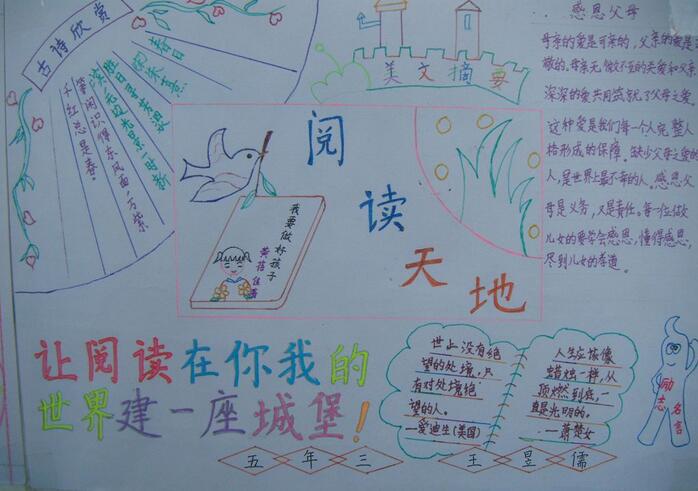 古诗欣赏
春日
宋朱熹
胜日寻芳泗水
滨,无边光景一时新
等闲识得东风面,万紫
千红总是春。
美文摘要
感恩父母
母亲的爱是可亲的,父亲的爱是可
敬的。母亲无微不至的关爱和父亲
深深的爱共同筑就了父母之爱
这种爱是我们每一个人完整人
格形成的保障。缺少父母之爱的
人,是世界上最不幸的人。感恩父
母是义务,又是责任。每一位做
儿女的要学会感恩,懂得感恩,
尽到儿女的孝道。
阅读天地
我要做好孩子
黄蓓佳著
让阅读在你我的
世界建一座城堡!
世上没有绝
望的处境,只
有对处境绝
望的人。
—爱迪生(美国)
人生应该像
蜡烛一样,从
顶燃到底,一
直是光明的。
——萧楚女
励志
名言
五年三
王昱儒